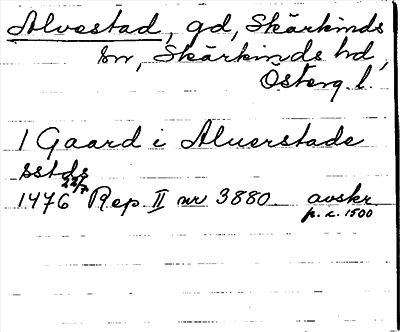 Alvestad, gd, Skärkinds
sn, Skärkinds hd,
Österg. l.
1 Gaard i Aluerstade
sstds
1476 22/7 Rep. II nr 3880. avskr.
p. c. 1500